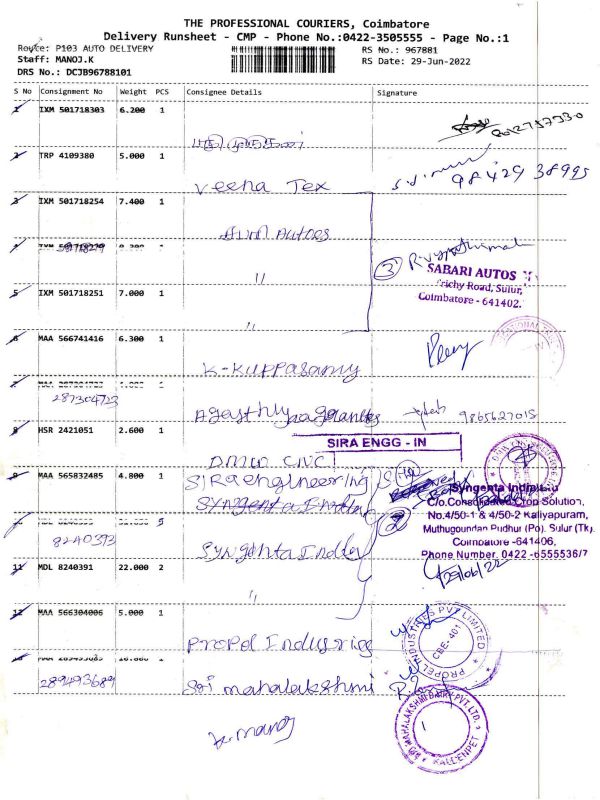 THE PROFESSIONAL COURIERS, Coimbatore
Delivery Runsheet - CMP - Phone No.:0422-3505555 - Page No.:1
Route: P103 AUTO DELIVERY
RS No.: 967881
Staff: MANOJ.K
RS Date: 29-Jun-2022
DRS No.: DCJB96788101
S No Consignment No Weight PCS Consignee Details Signature
1 IXM 501718303 6.200 1
2 TRP 4109380 5.000 1
Veena Tex
98429 38995
3 IXM 501718254 7.400 1
Autoes
4 IXM 501718279 1
"
3
SABARI AUTOS
Trichy Road, Sulur,
Coimbatore - 641402.
5 IXM 501718251 7.000 1
"
6 MAA 566741416 6.300 1
K-Kuppasamy
7 MAA 287304723 1
287304723
9865627015
8 HSR 2421051 2.600 1
SIRA ENGG - IN
DMW CNC
9 MAA 565832485 4.800 1
SIRA engineering
Syngenta India
Syngenta India Ltd
C/o.Consolidated Crop Solution,
No.4/50-1 & 4/50-2 Kaliyapuram,
Muthugoundan Pudhur (Po). Sulur (Tk).
Coimbatore -641406,
Phone Number. 0422 -6555536/7
8240393
Syngenta India
2
11 MDL 8240391 22.000 2
"
12 MAA 566304006 5.000 1
Propel Industries
PROPEL INDUSTRIES PVT LIMITED
CBE-401
13 MAA 289493689 1
289493689
Sri mahalakshmi
MAHALAKSHMI DAIRY PVT. LTD.
K. Manoj